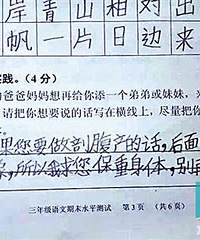 岸青山相对出
帆一片日边来
实践。(4分)
的爸爸妈妈想再给你添一个弟弟或妹妹,
请把你想要说的话写在横线上,尽量把你
果您要做剖腹产的话,后面
所以我求您保重身体,别
三年级语文期末水平测试 第3页 (共6页)